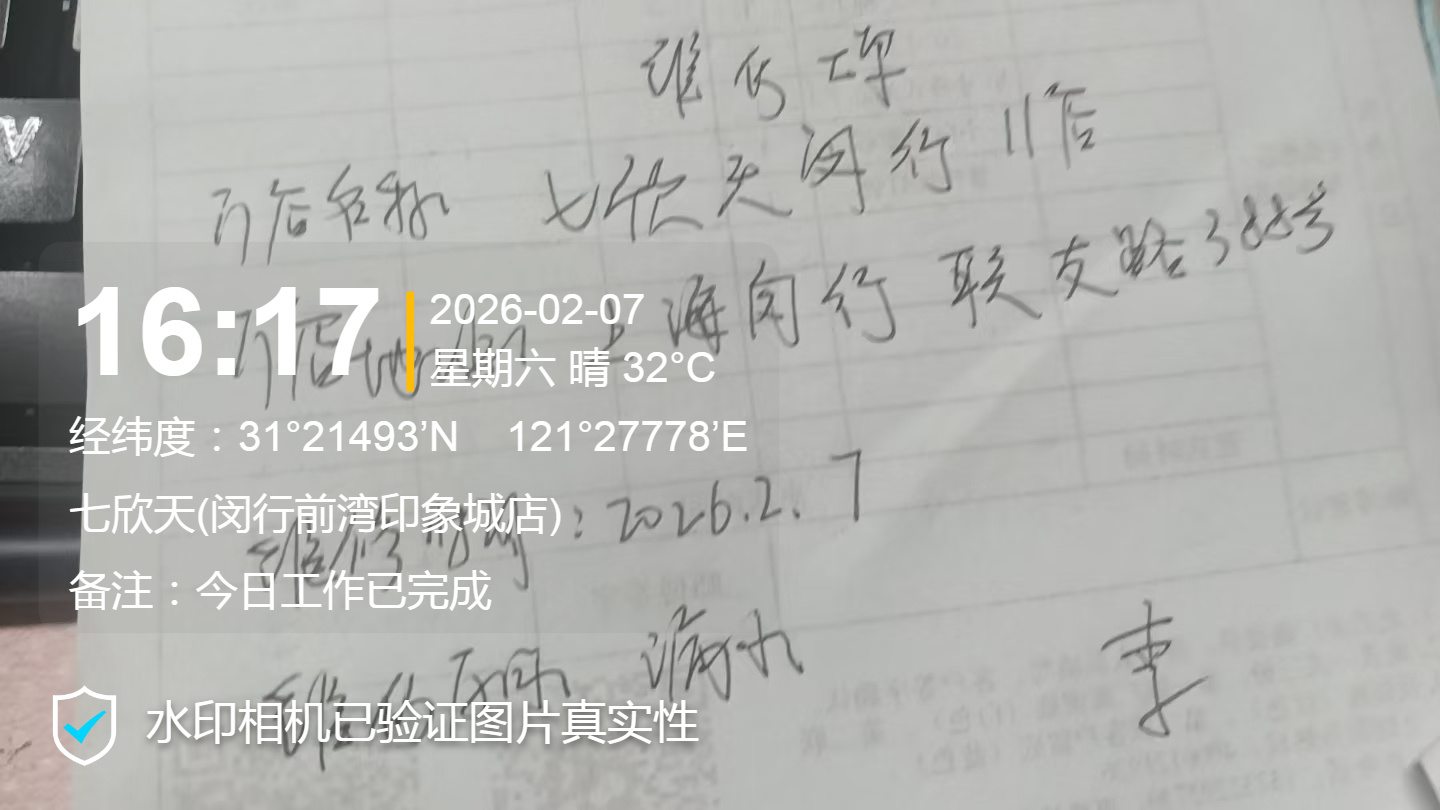 维修单
门店名称 七欣天闵行11店
门店地址 上海闵行联友路388号
16:17
2026-02-07
星期六 晴 32°C
经纬度：31°21493’N 121°27778’E
七欣天(闵行前湾印象城店)
维修时间：2026.2.7
备注：今日工作已完成
维修原因 漏水
李
水印相机已验证图片真实性